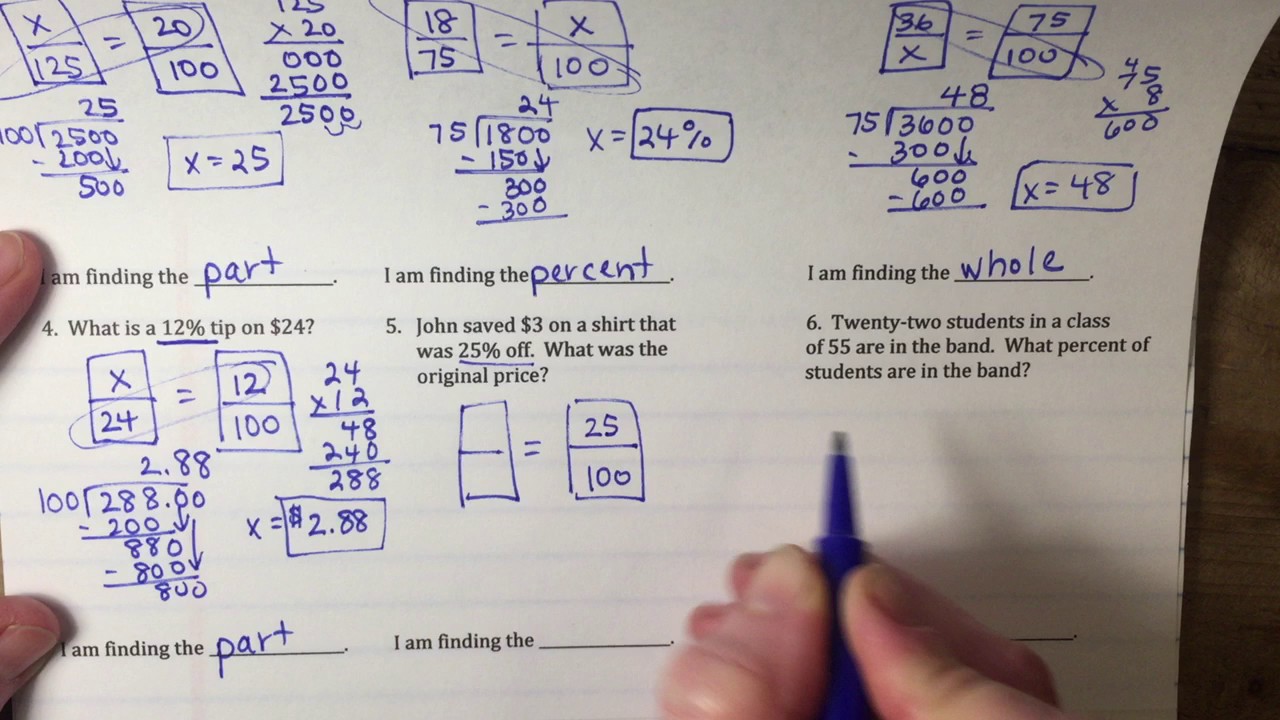 x = 20 125
125 100 x 20
000
2500
2500
25
100 2500
- 200
500
x = 25
18 = x
75 100
24
75 1800
- 150
300
- 300
x = 24%
36 = 75
x 100
4
75
x 8
600
48
75 3600
- 300
600
- 600
x = 48
I am finding the part.
I am finding the percent.
I am finding the whole.
4. What is a 12% tip on $24?
x = 12
24 100
24
x12
48
240
288
2.88
100 288.00
- 200
880
- 800
800
x = $2.88
I am finding the part.
5. John saved $3 on a shirt that
was 25% off. What was the
original price?
= 25
100
I am finding the ________.
6. Twenty-two students in a class
of 55 are in the band. What percent of
students are in the band?